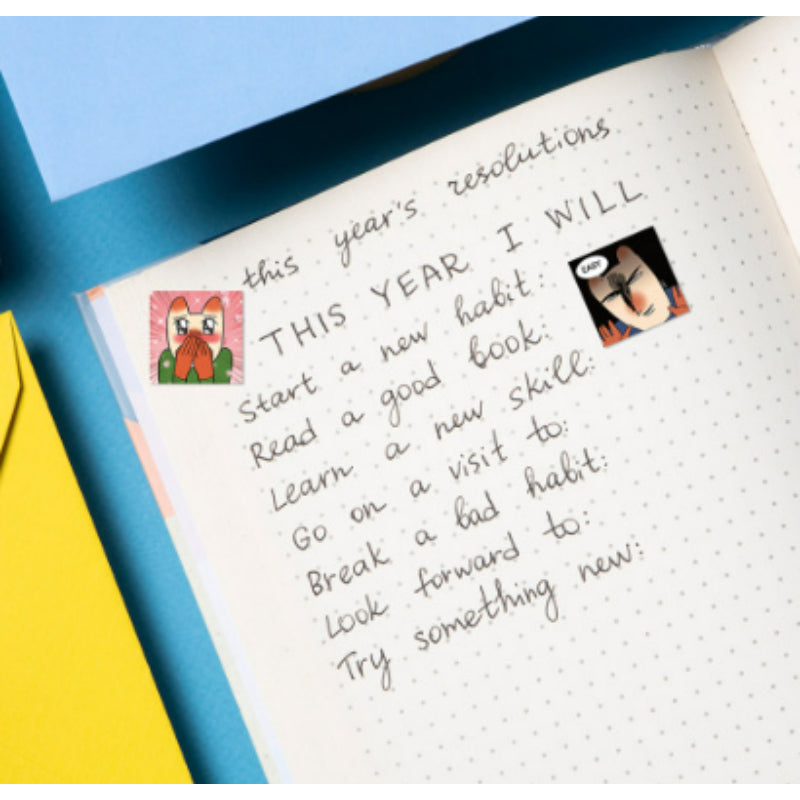 this year's resolutions
THIS YEAR I WILL
EASY
Start a new habit:
Read a good book:
Learn a new skill:
Go on a visit to:
Break a bad habit:
Look forward to:
Try something new: